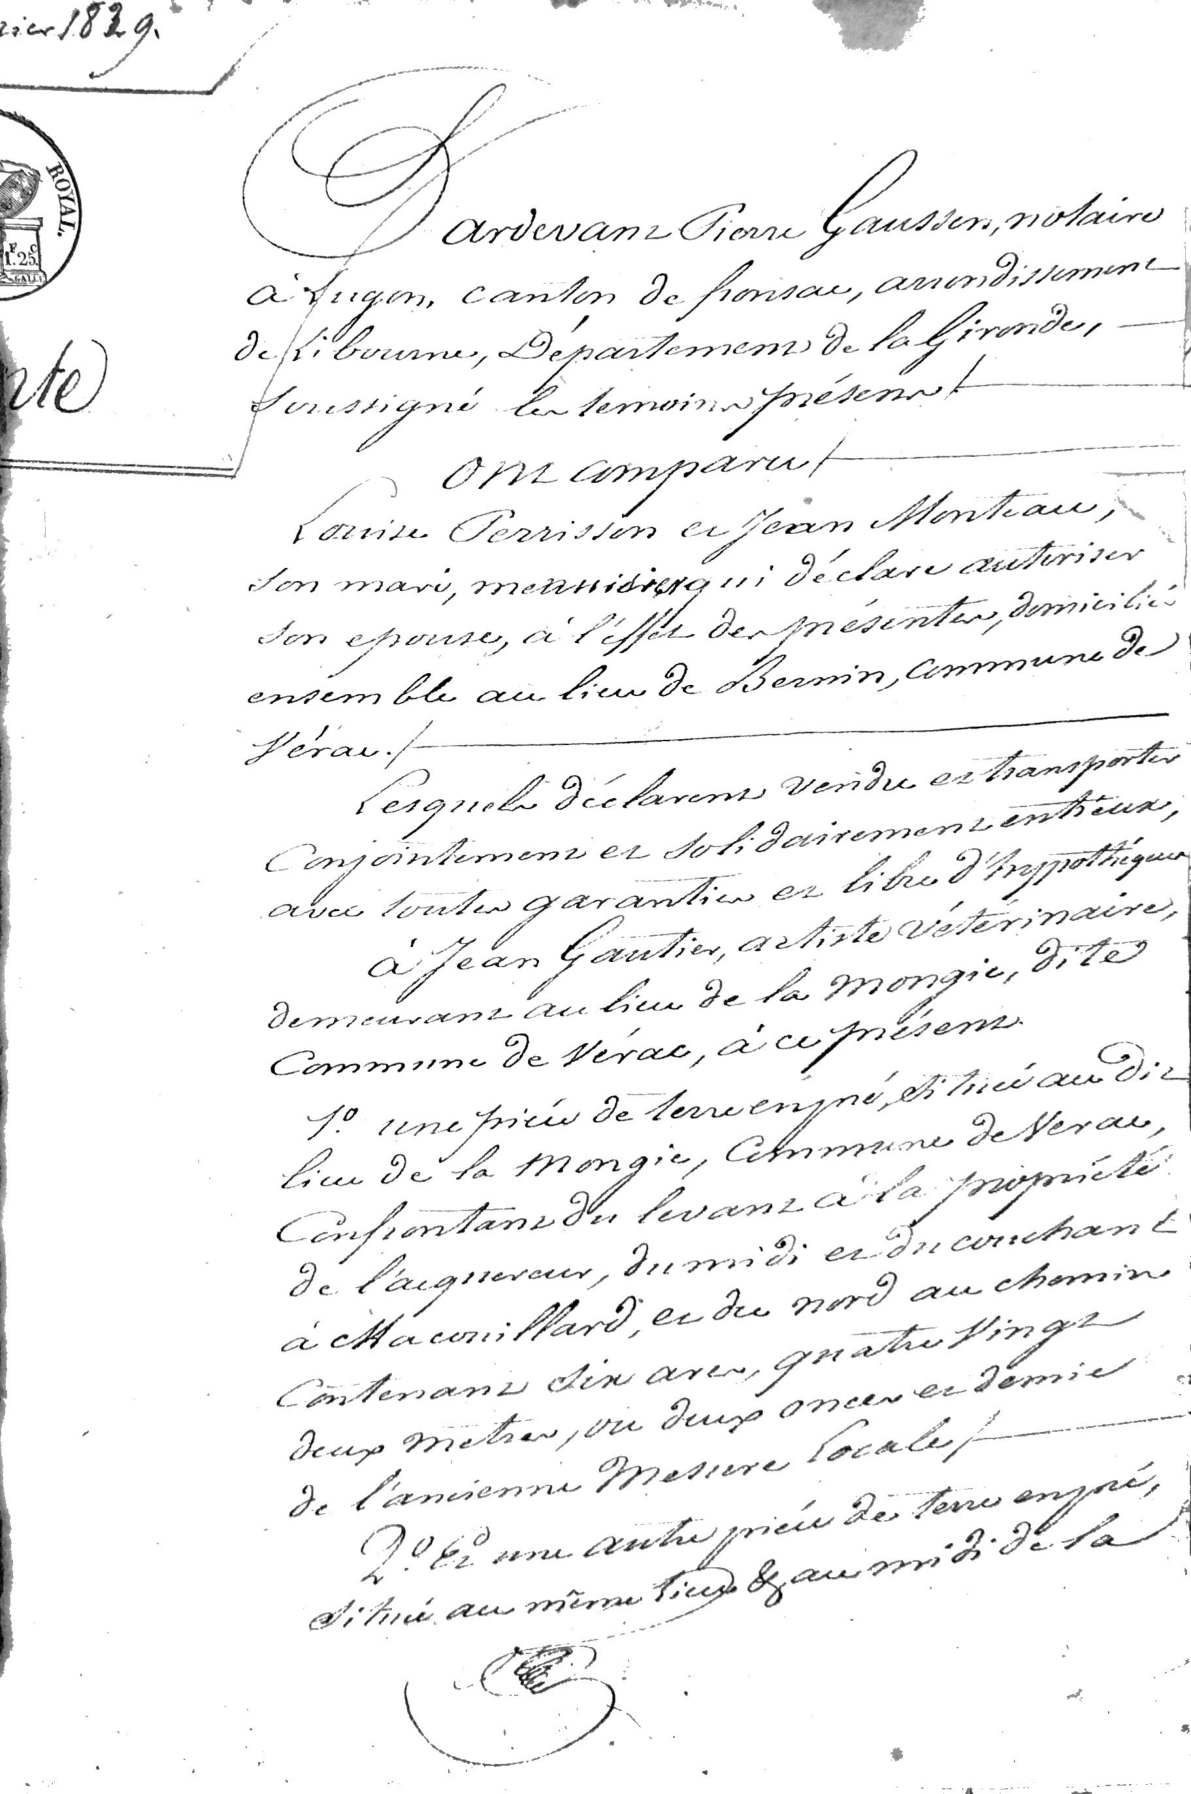 1829.
ROYAL.
F. C
1.25.
nte
Pardevant Pierre Gaussen, notaire
à Lugon, canton de fronsac, arrondissement
de Libourne, Département de la Gironde,
soussigné les temoins présens
ont comparu
Louise Perrisson et Jean Monteau,
son mari, menuisier qui déclare autoriser
son epouse, à l'effet des présentes, domiciliés
ensemble au lieu de Bernin, commune de
Vérac.
Lesquels déclarent vendre et transporter
Conjointement et solidairement entreeux,
avec toutes garanties et libre d'hyppothèques
à Jean Gautier, artiste vétérinaire,
demeurant au lieu de la mongie, dite
Commune de Vérac, à ce présent
1º. une pièce de terre en pré, située au dit
lieu de la mongie, Commune de Verac,
Confrontant du levant à la propriété
de l'acquereur, du midi et du couchant
à Macouillard, et du nord au chemin
Contenant six ares, quatre Vingt
deux metres, ou deux onces et demie
de l'ancienne Mesure Locale
2º. Et une autre pièce de terre en pré,
située au même lieu & au midi de la